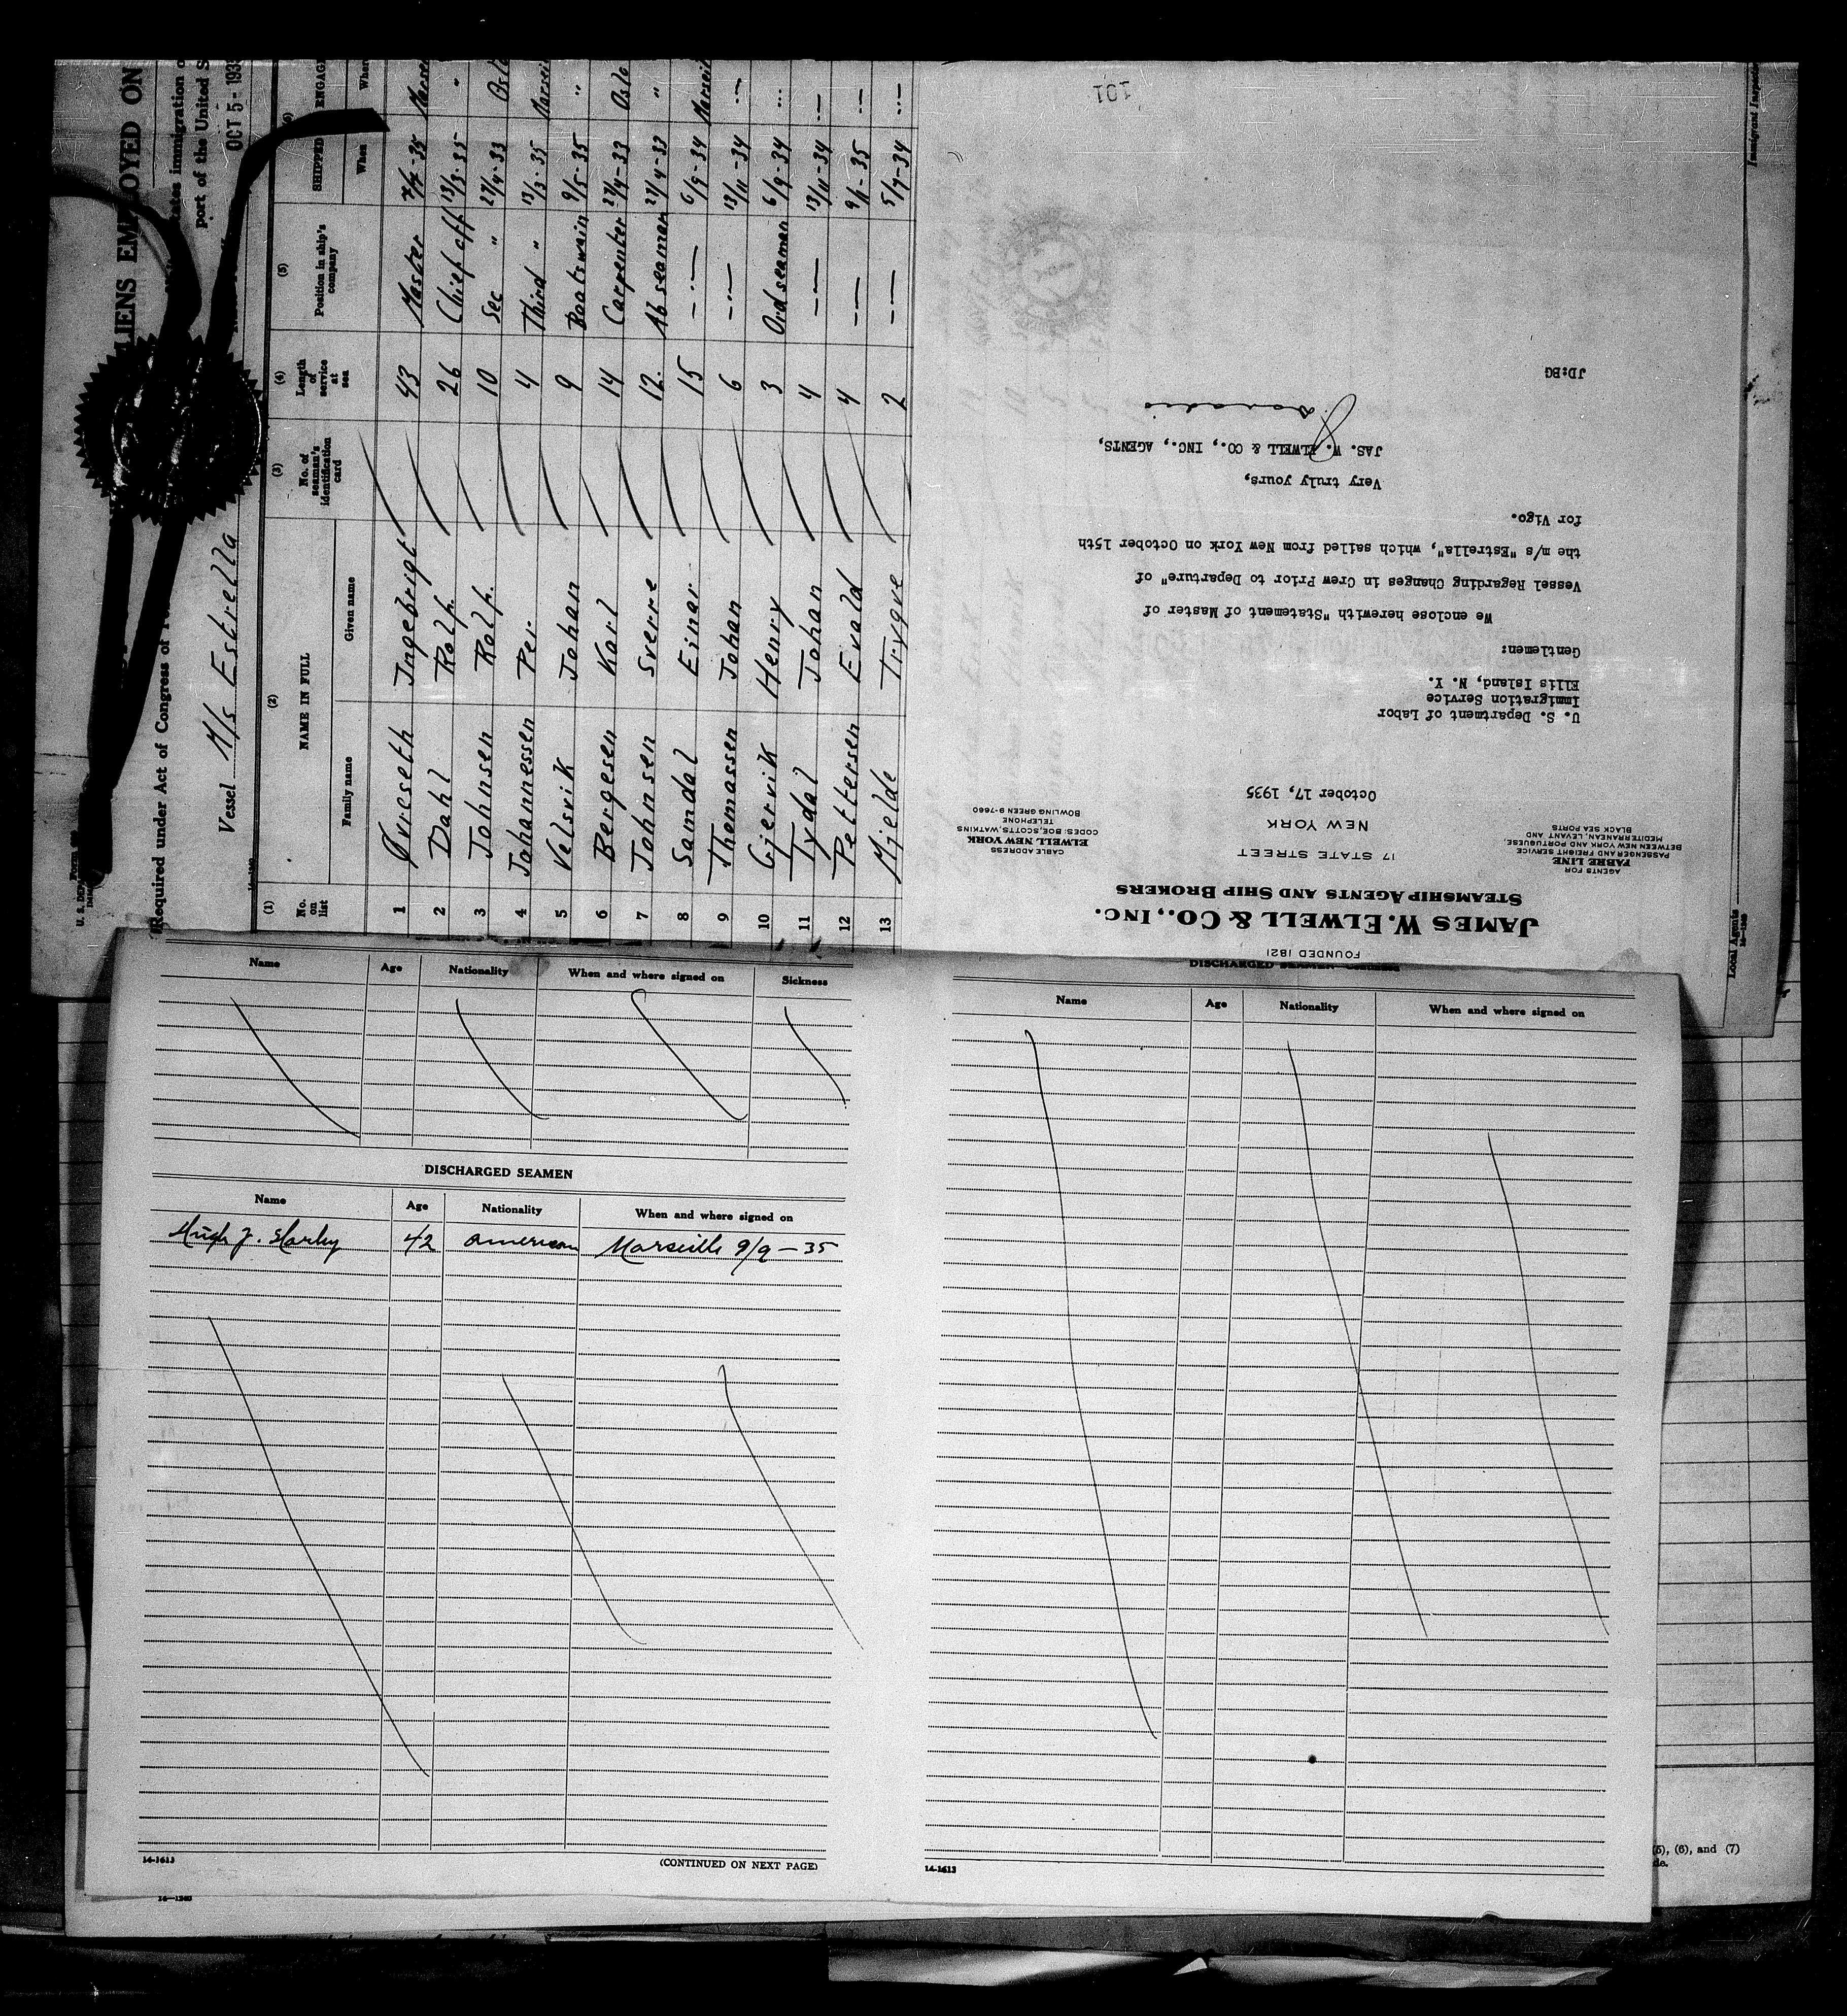 U. S. DEPARTMENT
LIENS EMPLOYED ON
Required under Act of Congress of
ates immigration o
port of the United S
OCT 5 - 193
Vessel M/s Estrella
(1) (2) (3) (4) (5)
No. on list NAME IN FULL No. of seaman's identification card Length of service at sea Position in ship's company SHIPPED ENGAG
Family name Given name When Wher
1 Øvreseth Ingebrigt 43 Master -35 Marse
2 Dahl Rolf. 26 Chief off 13/3-35 "
3 Johnsen Rolf. 10 Sec " 27/4-33 Oslo
4 Johannessen Per 4 Third " 13/3-35 Marsei
5 Velsvik Johan 9 Boatswain 9/5-35 "
6 Bergesen Karl 14 Carpenter 27/4-33 Oslo
7 Johnsen Sverre 12. Ab seaman 27/4-33 "
8 Samdal Einar 15 —·— 6/9-34 Marseil
9 Thomassen Johan 6 —·— 13/11-34 —·—
10 Gjervik Henry 3 Ord seaman 6/9-34 —·—
11 Tydal Johan 4 —·— 13/11-34 —·—
12 Pettersen Evald 4 —·— 9/1-35 —·—
13 Mjelde Trygve 2 —·— 5/9-34 —·—
101
FOUNDED 1821
JAMES W. ELWELL & CO., INC.
STEAMSHIP AGENTS AND SHIP BROKERS
AGENTS FOR
FABRE LINE
PASSENGER AND FREIGHT SERVICE
BETWEEN NEW YORK AND PORTUGUESE,
MEDITERRANEAN, LEVANT AND
BLACK SEA PORTS
17 STATE STREET
NEW YORK
CABLE ADDRESS
ELWELL NEW YORK
CODES: BOE, SCOTTS, WATKINS
TELEPHONE
BOWLING GREEN 9-7660
October 17, 1935
U. S. Department of Labor
Immigration Service
Ellis Island, N. Y.
Gentlemen:
We enclose herewith "Statement of Master of
Vessel Regarding Changes in Crew Prior to Departure" of
the m/s "Estrella", which sailed from New York on October 15th
for Vigo.
Very truly yours,
JAS. W. ELWELL & CO., INC., AGENTS,
JD:BG
Immigrant Inspector
Local Agents
Name Age Nationality When and where signed on Sickness
DISCHARGED SEAMEN
Name Age Nationality When and where signed on
Hugh J. 42 American Marseille 9/9-35
14-1613 (CONTINUED ON NEXT PAGE)
DISCHARGED SEAMEN
Name Age Nationality When and where signed on
14-1613
(5), (6), and (7)
de.